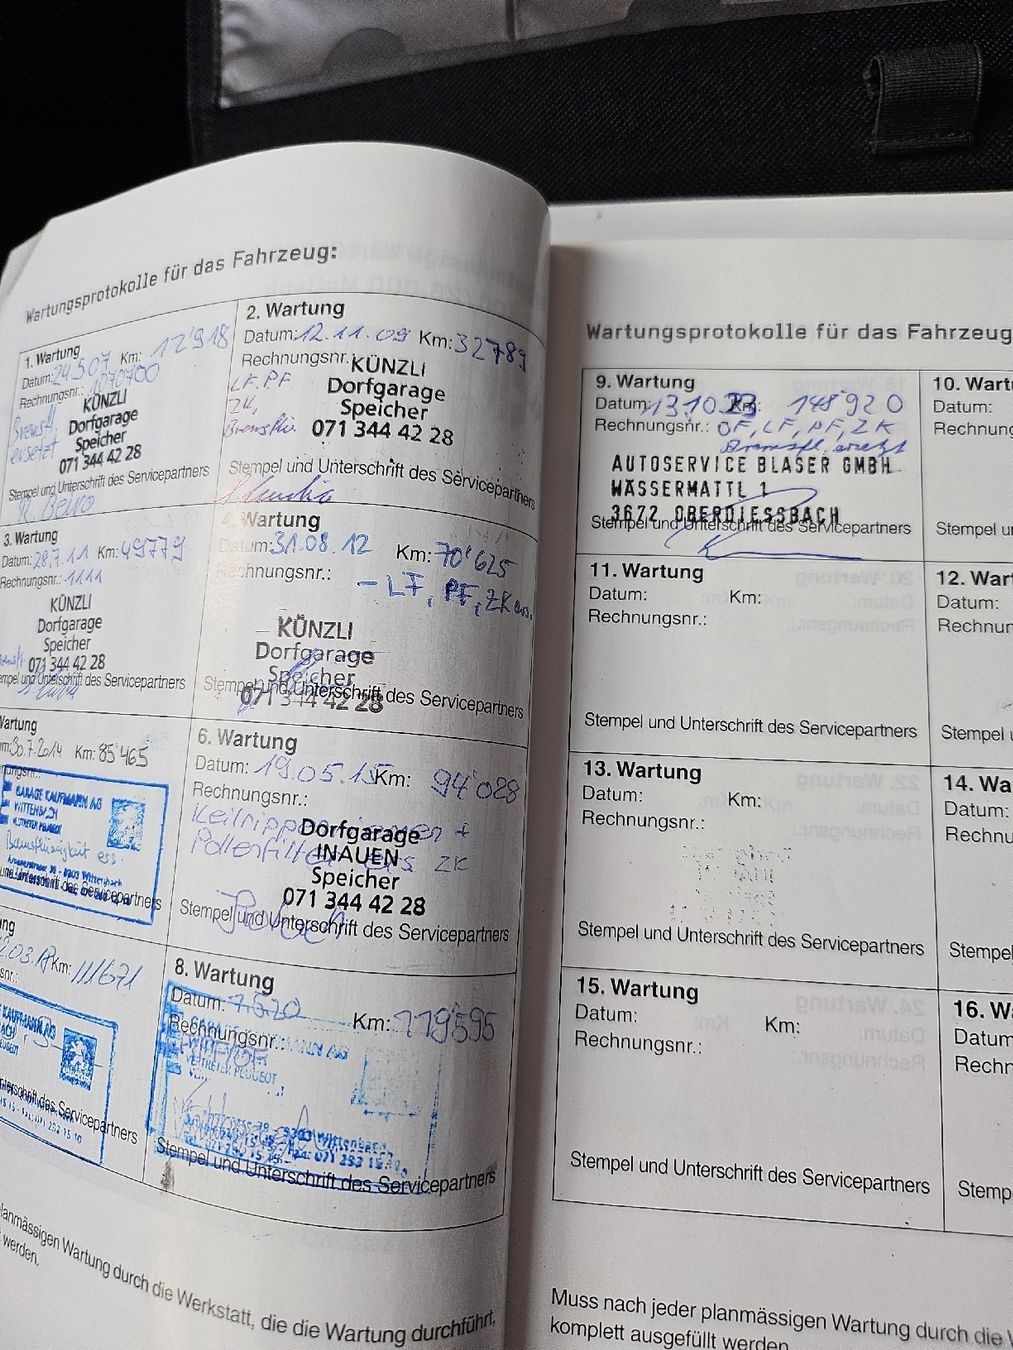 Wartungsprotokolle für das Fahrzeug:
1. Wartung
Datum: 24.507 Km: 12'918
Rechnungsnr.: 1070700
Bremsfl.
ersetzt
KÜNZLI
Dorfgarage
Speicher
071 344 42 28
Stempel und Unterschrift des Servicepartners
2. Wartung
Datum: 12.11.09 Km: 32789
Rechnungsnr.
LF, PF
ZK,
KÜNZLI
Dorfgarage
Speicher
071 344 42 28
Stempel und Unterschrift des Servicepartners
3. Wartung
Datum: 28.7.11 Km: 49779
Rechnungsnr.: 1111
KÜNZLI
Dorfgarage
Speicher
071 344 42 28
Stempel und Unterschrift des Servicepartners
4. Wartung
Datum: 31.08.12 Km: 70'625
Rechnungsnr.:
- LF, PF, ZK ers.
KÜNZLI
Dorfgarage
Speicher
071 344 42 28
Stempel und Unterschrift des Servicepartners
Wartung
30.7.2014 Km: 85'465
GARAGE KAUFMANN AG
WITTENBACH
VERTRETER PEUGEOT
Bremsflüssigkeit ers.
und Unterschrift des Servicepartners
6. Wartung
Datum: 19.05.15 Km: 94'028
Rechnungsnr.:
Keilrippenriemen +
Pollenfilter ers ZK
Dorfgarage
INAUEN
Speicher
071 344 42 28
Stempel und Unterschrift des Servicepartners
.03.17 Km: 111671
KAUFMANN AG
Unterschrift des Servicepartners
071 292 15 10
8. Wartung
Datum: 7.5.20 Km: 119595
Rechnungsnr.:
KAUFMANN AG
VERTRETER PEUGEOT
Wittenbach
Stempel und Unterschrift des Servicepartners
planmässigen Wartung durch die Werkstatt, die die Wartung durchführt,
werden.
Wartungsprotokolle für das Fahrzeug
9. Wartung
Datum: 13.10.23 Km: 148'920
Rechnungsnr.: ÖF, LF, PF, ZK
Bremsfl. ersetzt
AUTOSERVICE BLASER GMBH
WÄSSERMATTL 1
3672 OBERDIESSBACH
Stempel und Unterschrift des Servicepartners
10. Wart
Datum:
Rechnun
Stempel u
11. Wartung
Datum: Km:
Rechnungsnr.:
Stempel und Unterschrift des Servicepartners
12. Wart
Datum:
Rechnun
Stempel u
13. Wartung
Datum: Km:
Rechnungsnr.:
Stempel und Unterschrift des Servicepartners
14. Wa
Datum:
Rechnu
Stempe
15. Wartung
Datum: Km:
Rechnungsnr.:
Stempel und Unterschrift des Servicepartners
16. W
Datum
Rechn
Stemp
Muss nach jeder planmässigen Wartung durch die W
komplett ausgefüllt werden.